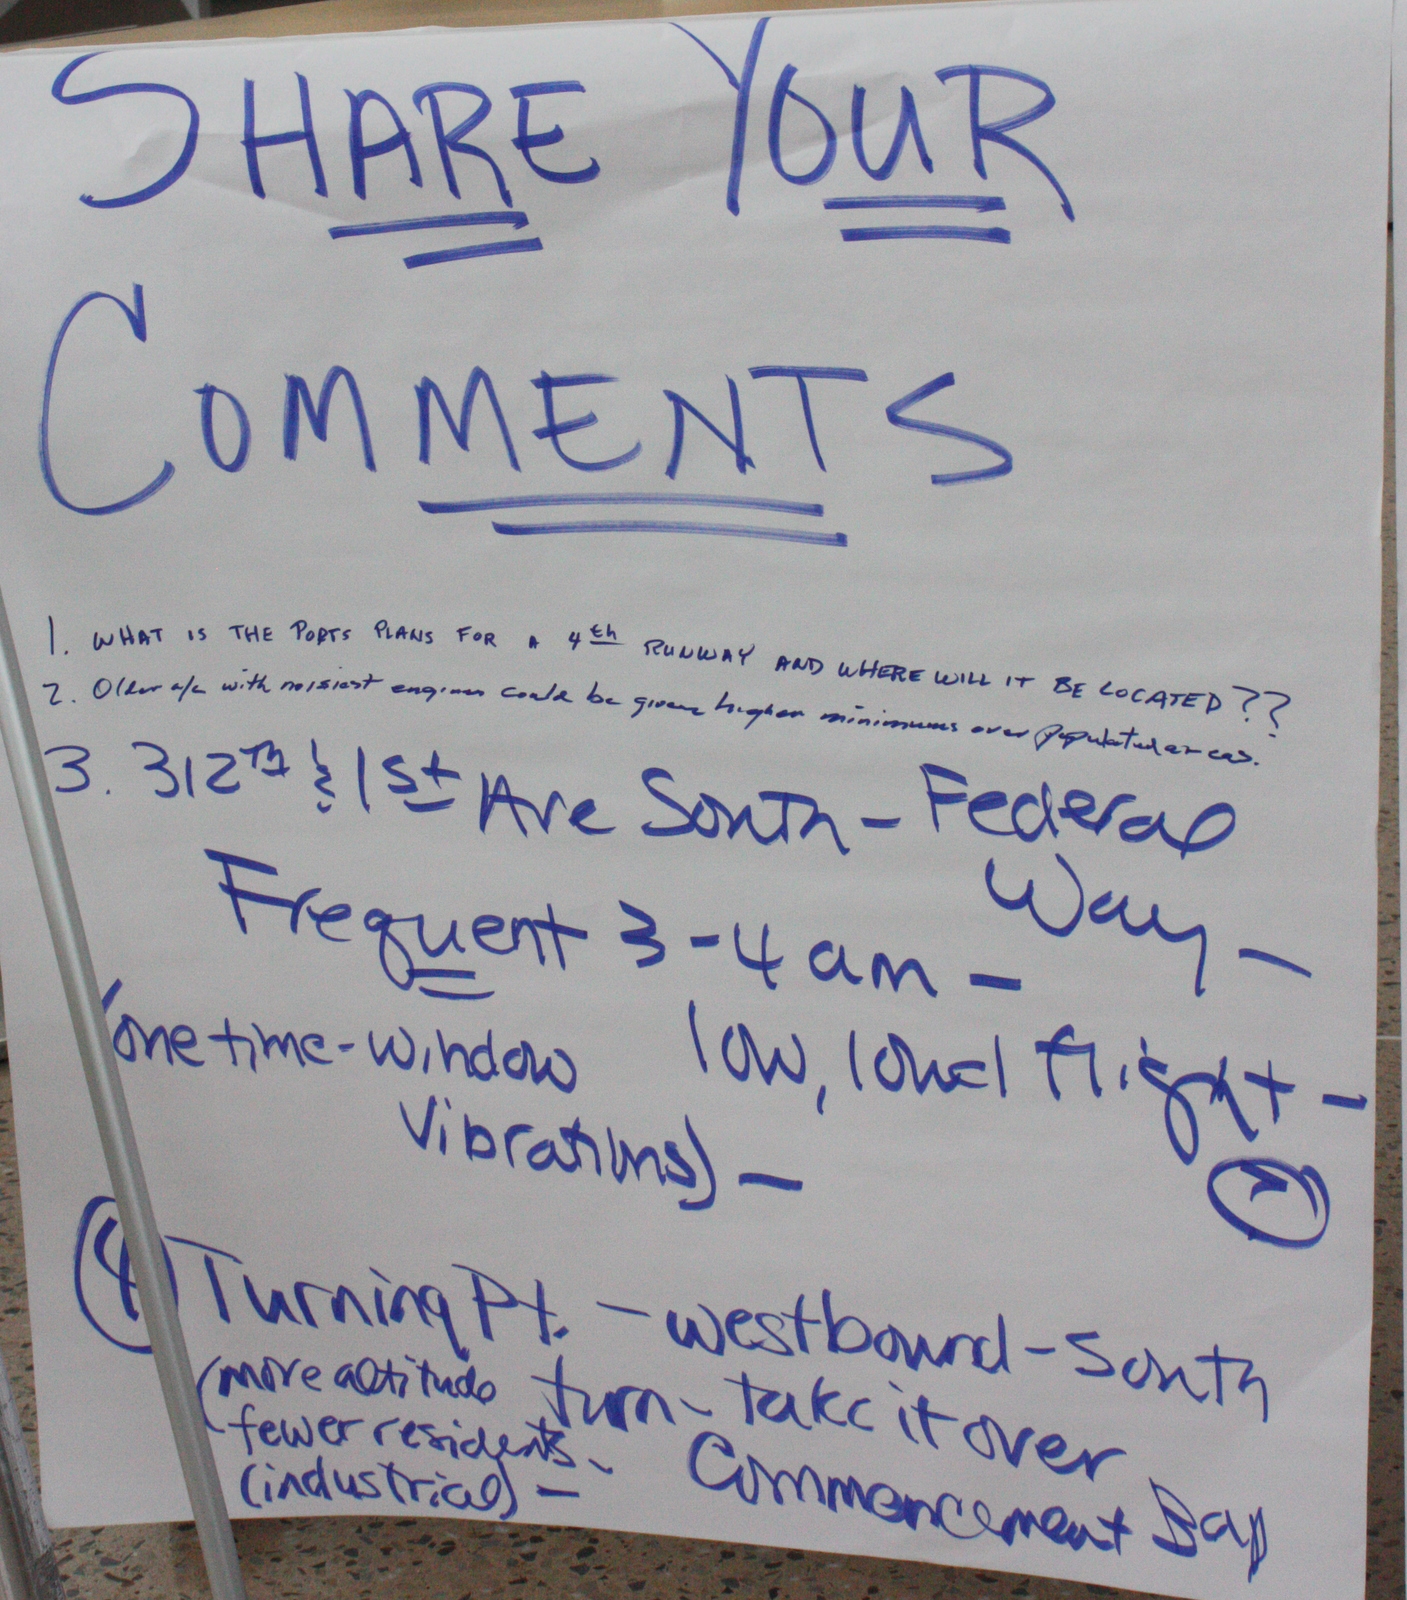 SHARE YOUR
COMMENTS
1. WHAT IS THE PORTS PLANS FOR A 4th RUNWAY AND WHERE WILL IT BE LOCATED??
2. Older a/c with noisiest engines could be given higher minimums over populated areas.
3. 312TH & 1st Ave South - Federal
Way -
Frequent 3-4 am -
low, loud flight -
(one time - window
vibrations) -
4 Turning Pt. - westbound - south
turn - take it over
Commencement Bay
(more altitude
fewer residents -
(industrial) -